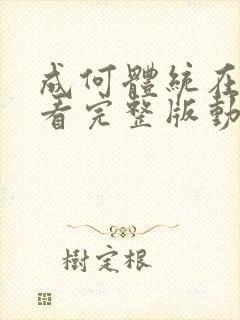 成何體統在
看完整版動
樹定根